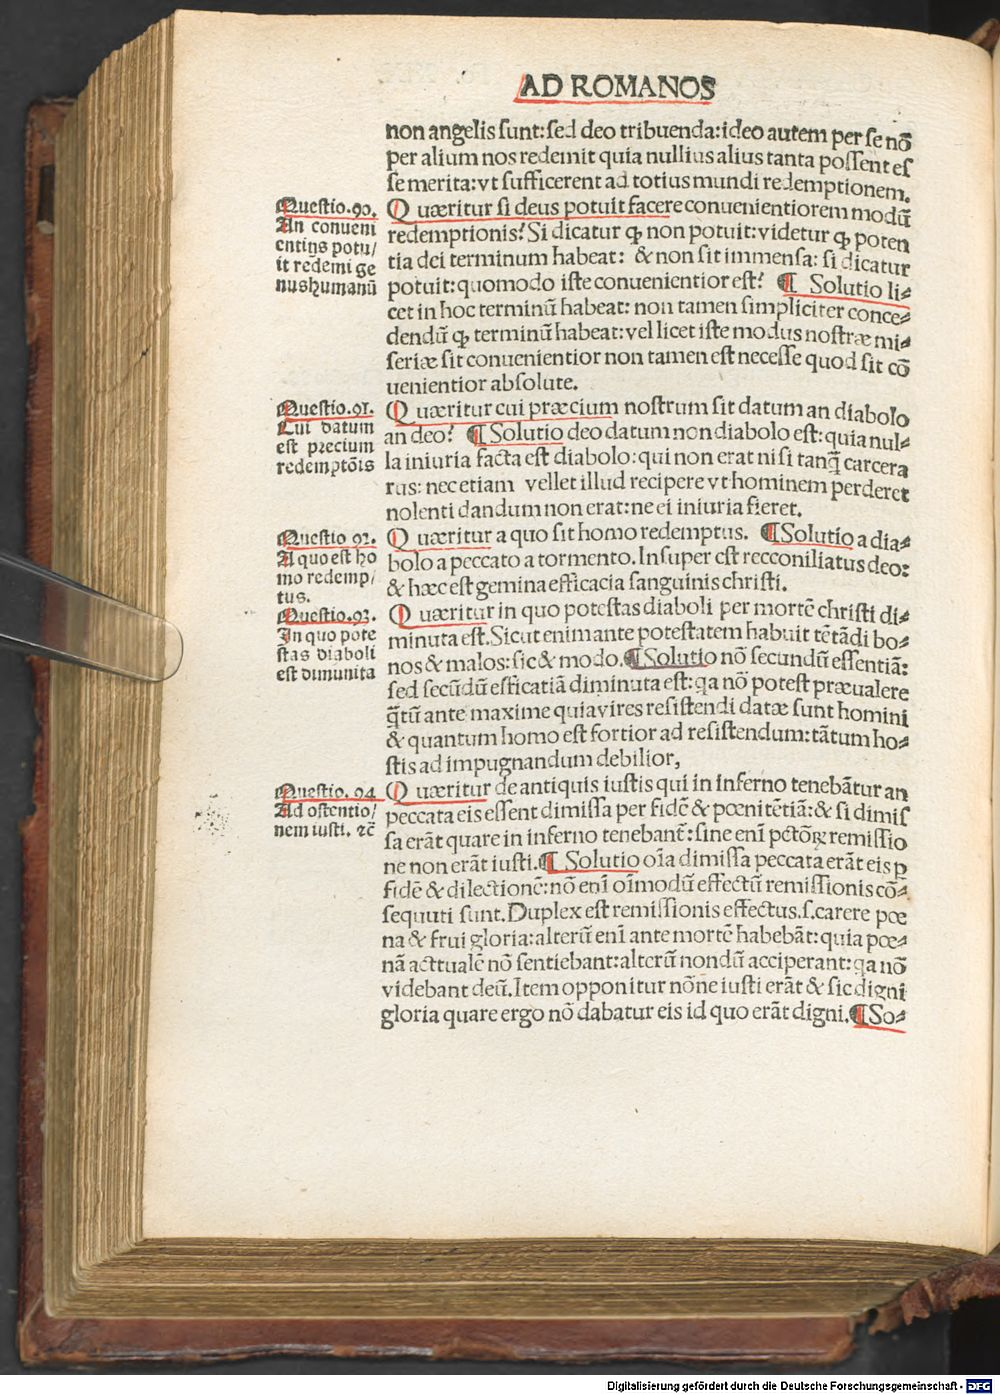 AD ROMANOS
non angelis sunt:sed deo tribuenda:ideo autem per se nō
per alium nos redemit quia nullius alius tanta possent es
se merita:vt sufficerent ad totius mundi redemptionem.
Questio.90.
An conueni
entius potu/
it redemi ge
nus humanū
Quæritur si deus potuit facere conuenientiorem modū
redemptionis? Si dicatur ꝙ non potuit:videtur ꝙ poten
tia dei terminum habeat: & non sit immensa: si dicatur
potuit:quomodo iste conuenientior est? ¶ Solutio li⸗
cet in hoc terminū habeat: non tamen simpliciter conce⸗
dendū ꝙ terminū habeat:vel licet iste modus nostræ mi⸗
seriæ sit conuenientior non tamen est necesse quod sit cō
uenientior absolute.
Questio.91.
Cui datum
est precium
redemptōis
Quæritur cui præcium nostrum sit datum an diabolo
an deo? ¶ Solutio deo datum non diabolo est:quia nul⸗
la iniuria facta est diabolo:qui non erat nisi tanq̄ carcera
rus: nec etiam vellet illud recipere vt hominem perderet
nolenti dandum non erat:ne ei iniuria fieret.
Questio 92.
A quo est ho
mo redemp/
tus.
Quæritur a quo sit homo redemptus. ¶ Solutio a dia⸗
bolo a peccato a tormento. Insuper est recconiliatus deo:
& hæc est gemina efficacia sanguinis christi.
Questio.93.
In quo pote
stas diaboli
est diminuita
Quæritur in quo potestas diaboli per mortē christi di⸗
minuta est. Sicut enim ante potestatem habuit tētādi bo⸗
nos & malos: sic & modo. ¶ Solutio nō secundū essentiā:
sed secūdū efficatiā diminuta est: qa nō potest præualere
q̄tū ante maxime quia vires resistendi datæ sunt homini
& quantum homo est fortior ad resistendum:tātum ho⸗
stis ad impugnandum debilior,
Questio. 94
Ad ostentio/
nem iusti. ⁊c̄
Quæritur de antiquis iustis qui in inferno tenebātur an
peccata eis essent dimissa per fidē & pœnitētiā: & si dimis
sa erāt quare in inferno tenebant̄: sine enī pctōꝝ remissio
ne non erāt iusti. ¶ Solutio oīa dimissa peccata erāt eis ꝑ
fidē & dilectionē: nō enī oīmodū effectū remissionis cō⸗
sequuti sunt. Duplex est remissionis effectus.s.carere pœ
na & frui gloria: alterū enī ante mortē habebāt: quia pœ⸗
nā acttualē nō sentiebant:alterū nondū acciperant: qa nō
videbant deū. Item opponitur nōne iusti erāt & sic digni
gloria quare ergo nō dabatur eis id quo erāt digni. ¶ So⸗
Digitalisierung gefördert durch die Deutsche Forschungsgemeinschaft - DFG